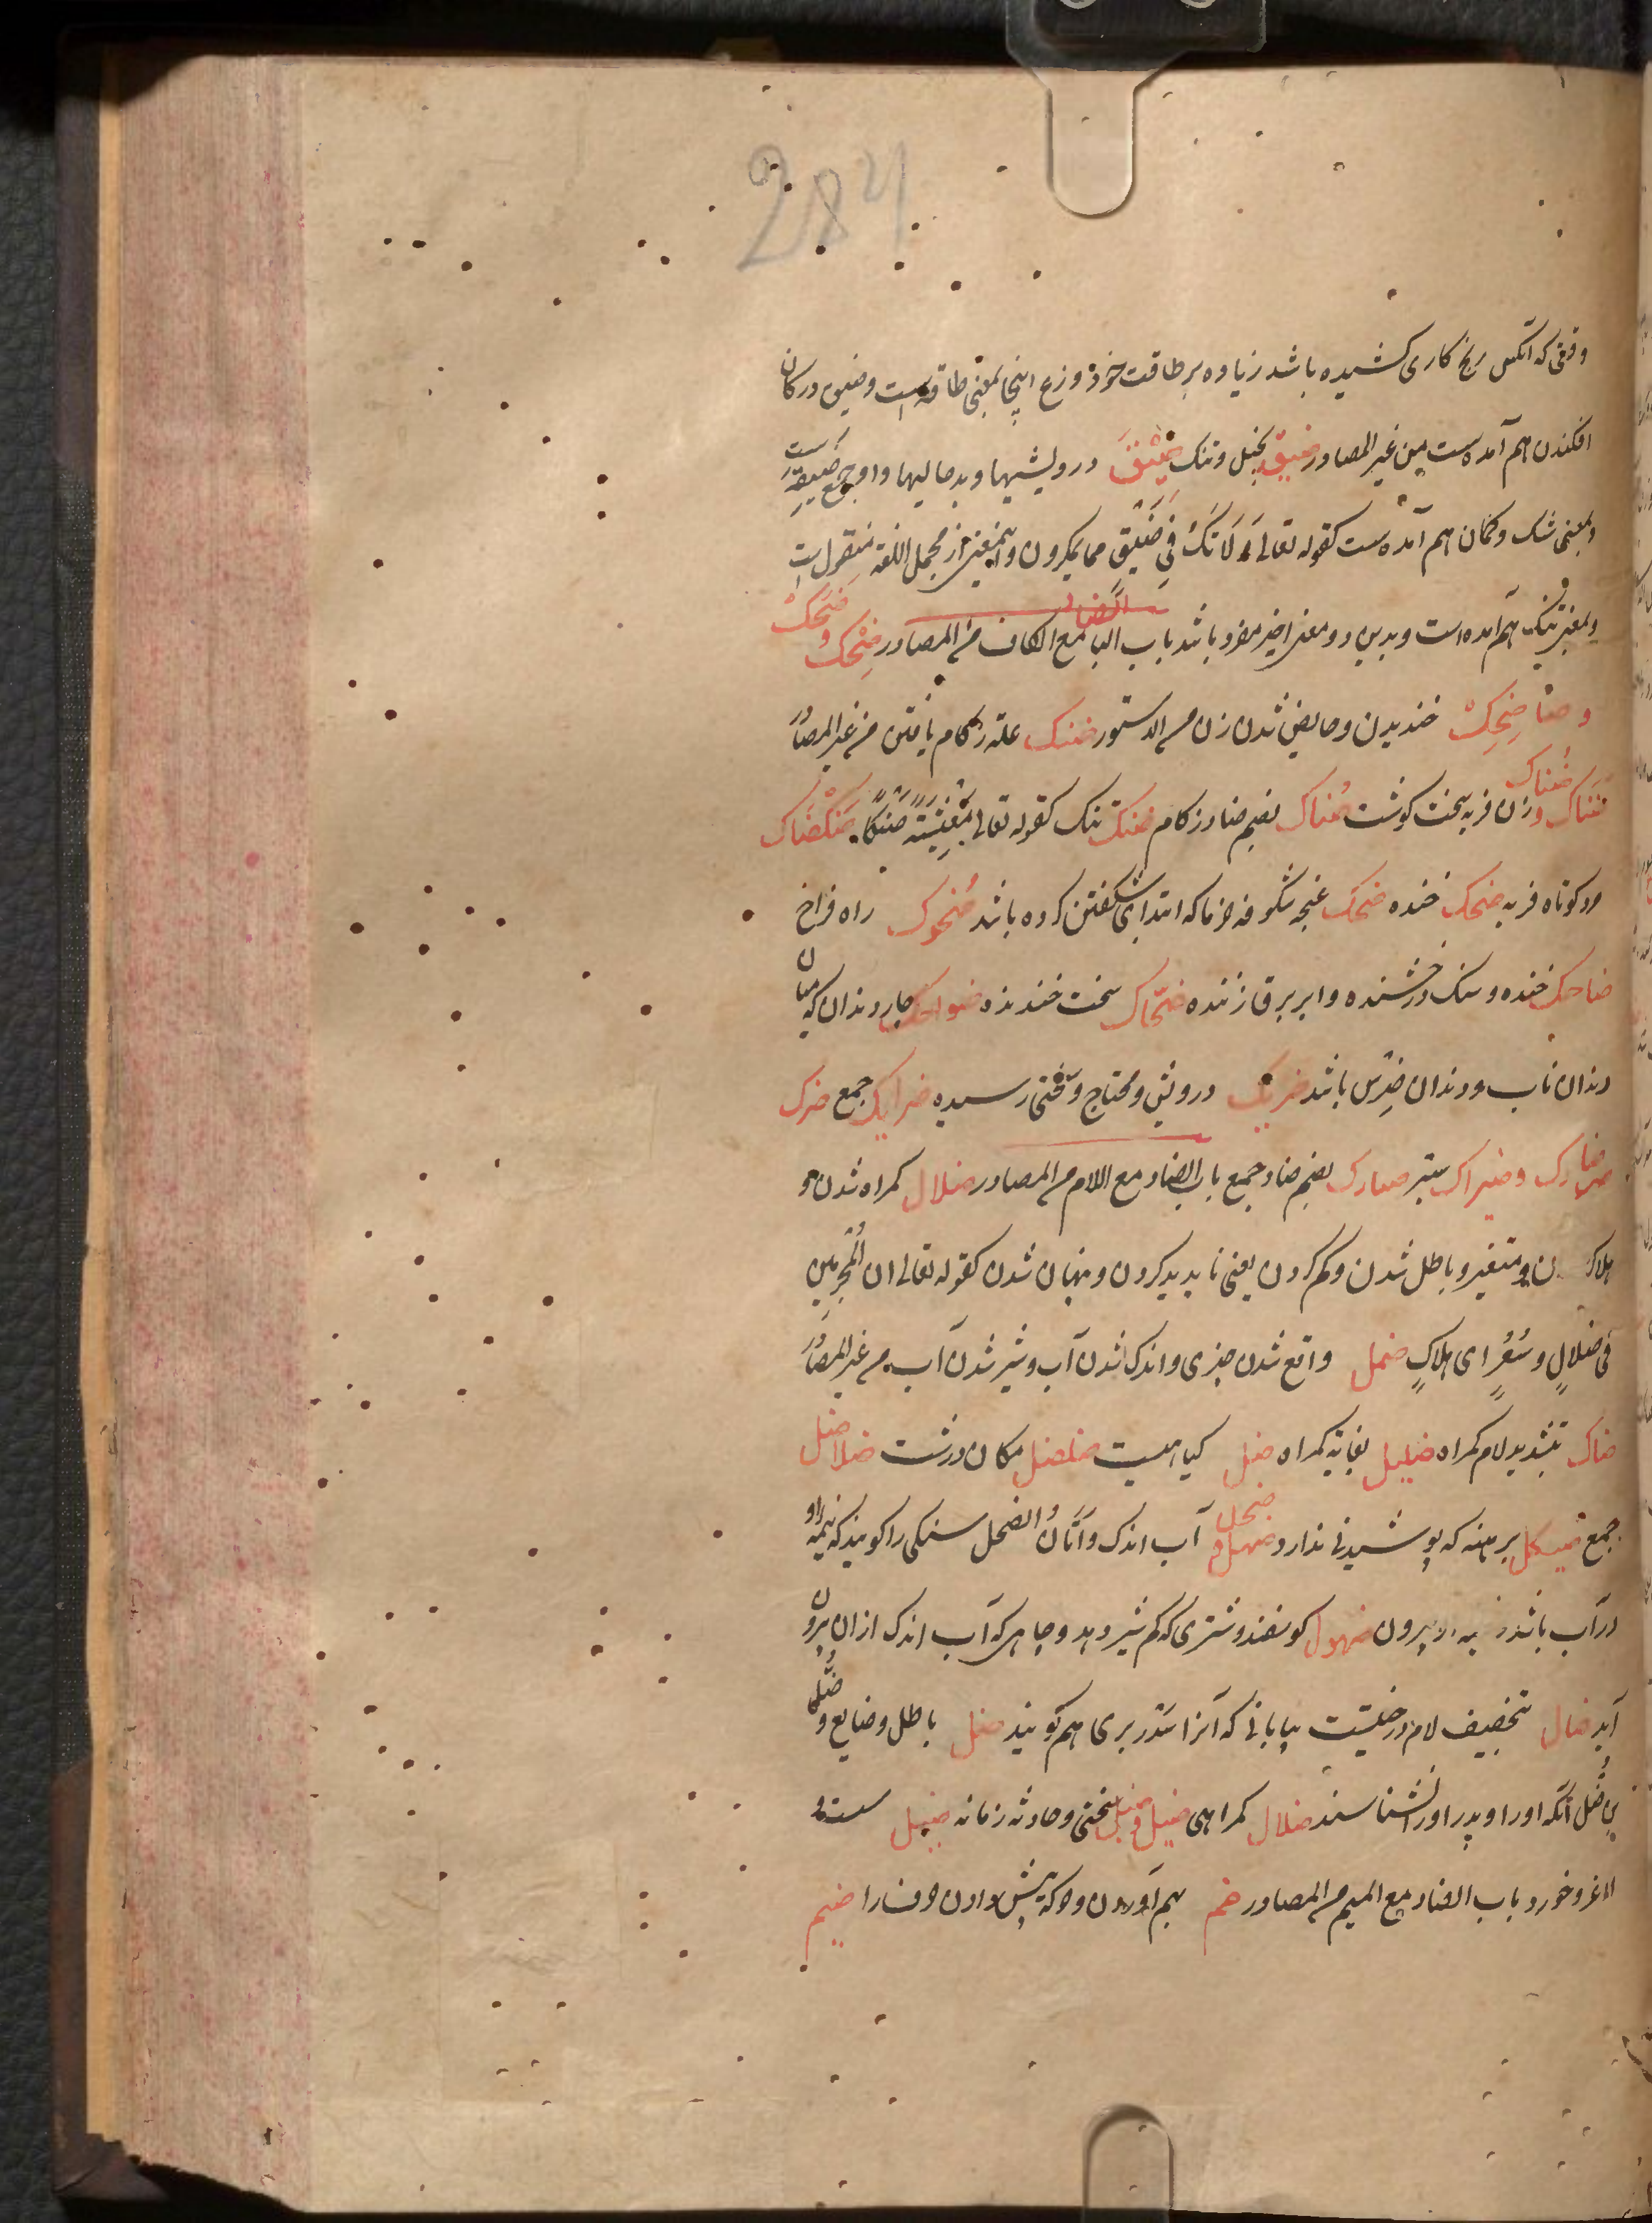 284
وقتی که آنکس رنج کاری کشیده باشد زیاده بر طاقت خود و زع اینجا بمعنی طاقه است و ضیق در کان
افکندن هم آمده است من غیر المصادر ضیّق بخیل و تنک ضِیَق درویشیها و بدحالیها واو جمع ضَیقة است
و بمعنی شک و کمان هم آمده ست کقوله تعالی وَلَا تَکُ فِی ضَیْقٍ مما یمکرون و اینمعنی از مجمل اللغه منقول است
و بمعنی تنک هم آمده است و بدین دو معنی اخیر مفرد باشد باب الضاد مع الکاف من المصادر ضِحْک و ضَحْک
و ضِحِکْ خندیدن و حایض شدن زن من الدستور ضنک علة زکام یافتن من غیر المصادر
ضَناک و ضُناک زن فربه سخت کوشت ضُناک بضم ضاد زکام ضنک تنک کقوله تعالی مَعِیشَةً ضَنْکًا
مرد کوتاه فربه ضحک خنده ضحک غنچه شکوفه خرما که ابتدای شکفتن کرده باشد ضُحُوک راه فراخ
ضاحک خنده و سنک درخشنده و ابر برق زننده ضحّاک سخت خندنده ضواحک چار دندان که میان
دندان ناب و دندان ضِرس باشد ضریک درویش و محتاج و سختی رسیده ضرایک جمع ضرک
ضبارک و ضبراک ستبر ضبارک بضم ضاد جمع باب الضاد مع اللام من المصادر ضلال کمراه شدن و
هلاک ن و متغیر و باطل شدن و کم کردن یعنی ناپدید کردن و پنهان شدن کقوله تعالی ان المُجْرِمِین
فی ضلالٍ وسُعُرٍ ای هلاکٍ ضحل واقع شدن چیزی و اندک شدن آب و شیر شدن آب من غیر المصادر
ضال بتشدید لام کمراه ضلیل بغایة کمراه ضل کیاهیست ضلضل مکان درشت ضلاضل
جمع ضیکل برهنه که پوشیدنی ندارد ضهل و ضحل آب اندک وأتَانُ الضحل سنکی را کویند که نیمه او
در آب باشد بیرون ضهول کوسفند و شتری که کم شیر دهد و چاهی که آب اندک ازان بیرون
آید ضال بتخفیف لام درختیست بیابانی که آنرا سدر بری هم کویند ضل باطل و ضایع و ضُلّ
بن ضُل آنکه او را و پدر او را نشناسند ضلال کمراهی ضئیل سختی و حادثه زمانه ضئیل سست و
لاغر و خورد باب الضاد مع المیم من المصادر ضم بهم آوردن و حرکه پیش دادن حرف را ضیم